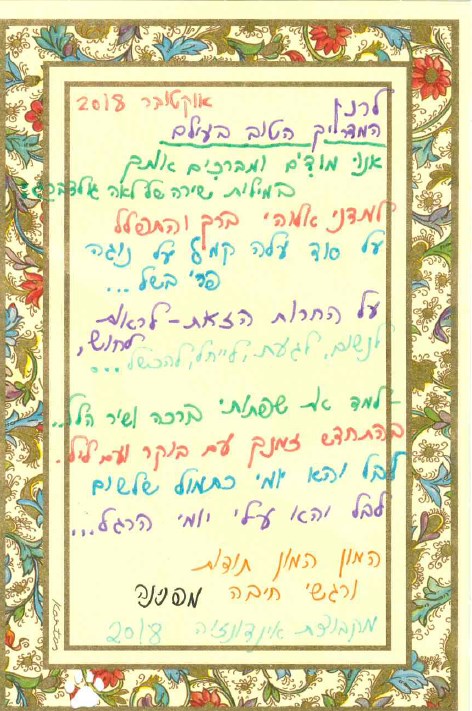 אוקטובר 2018
לרנן
המדריך הטוב בעולם
אנו מודים ומברכים אותך
במילות שירה של לאה גולדברג:
למדני אלוהי ברך והתפלל
על סוד עלה קמל על נוגה
פרי בשל...
על החרות הזאת - לראות
לחוש,
לנשום, לגעת, לייחל, להכשל...
למד את שפתותי ברכה ושיר הלל..
בהתחדש זמנך עם בוקר ועם ליל.
לבל יהא יומי כתמול שלשום
לבל יהא עלי יומי הרגל...
המון המון תודות
ורגשי חיבה מפנינה
מקבוצת אינדונזיה 2018